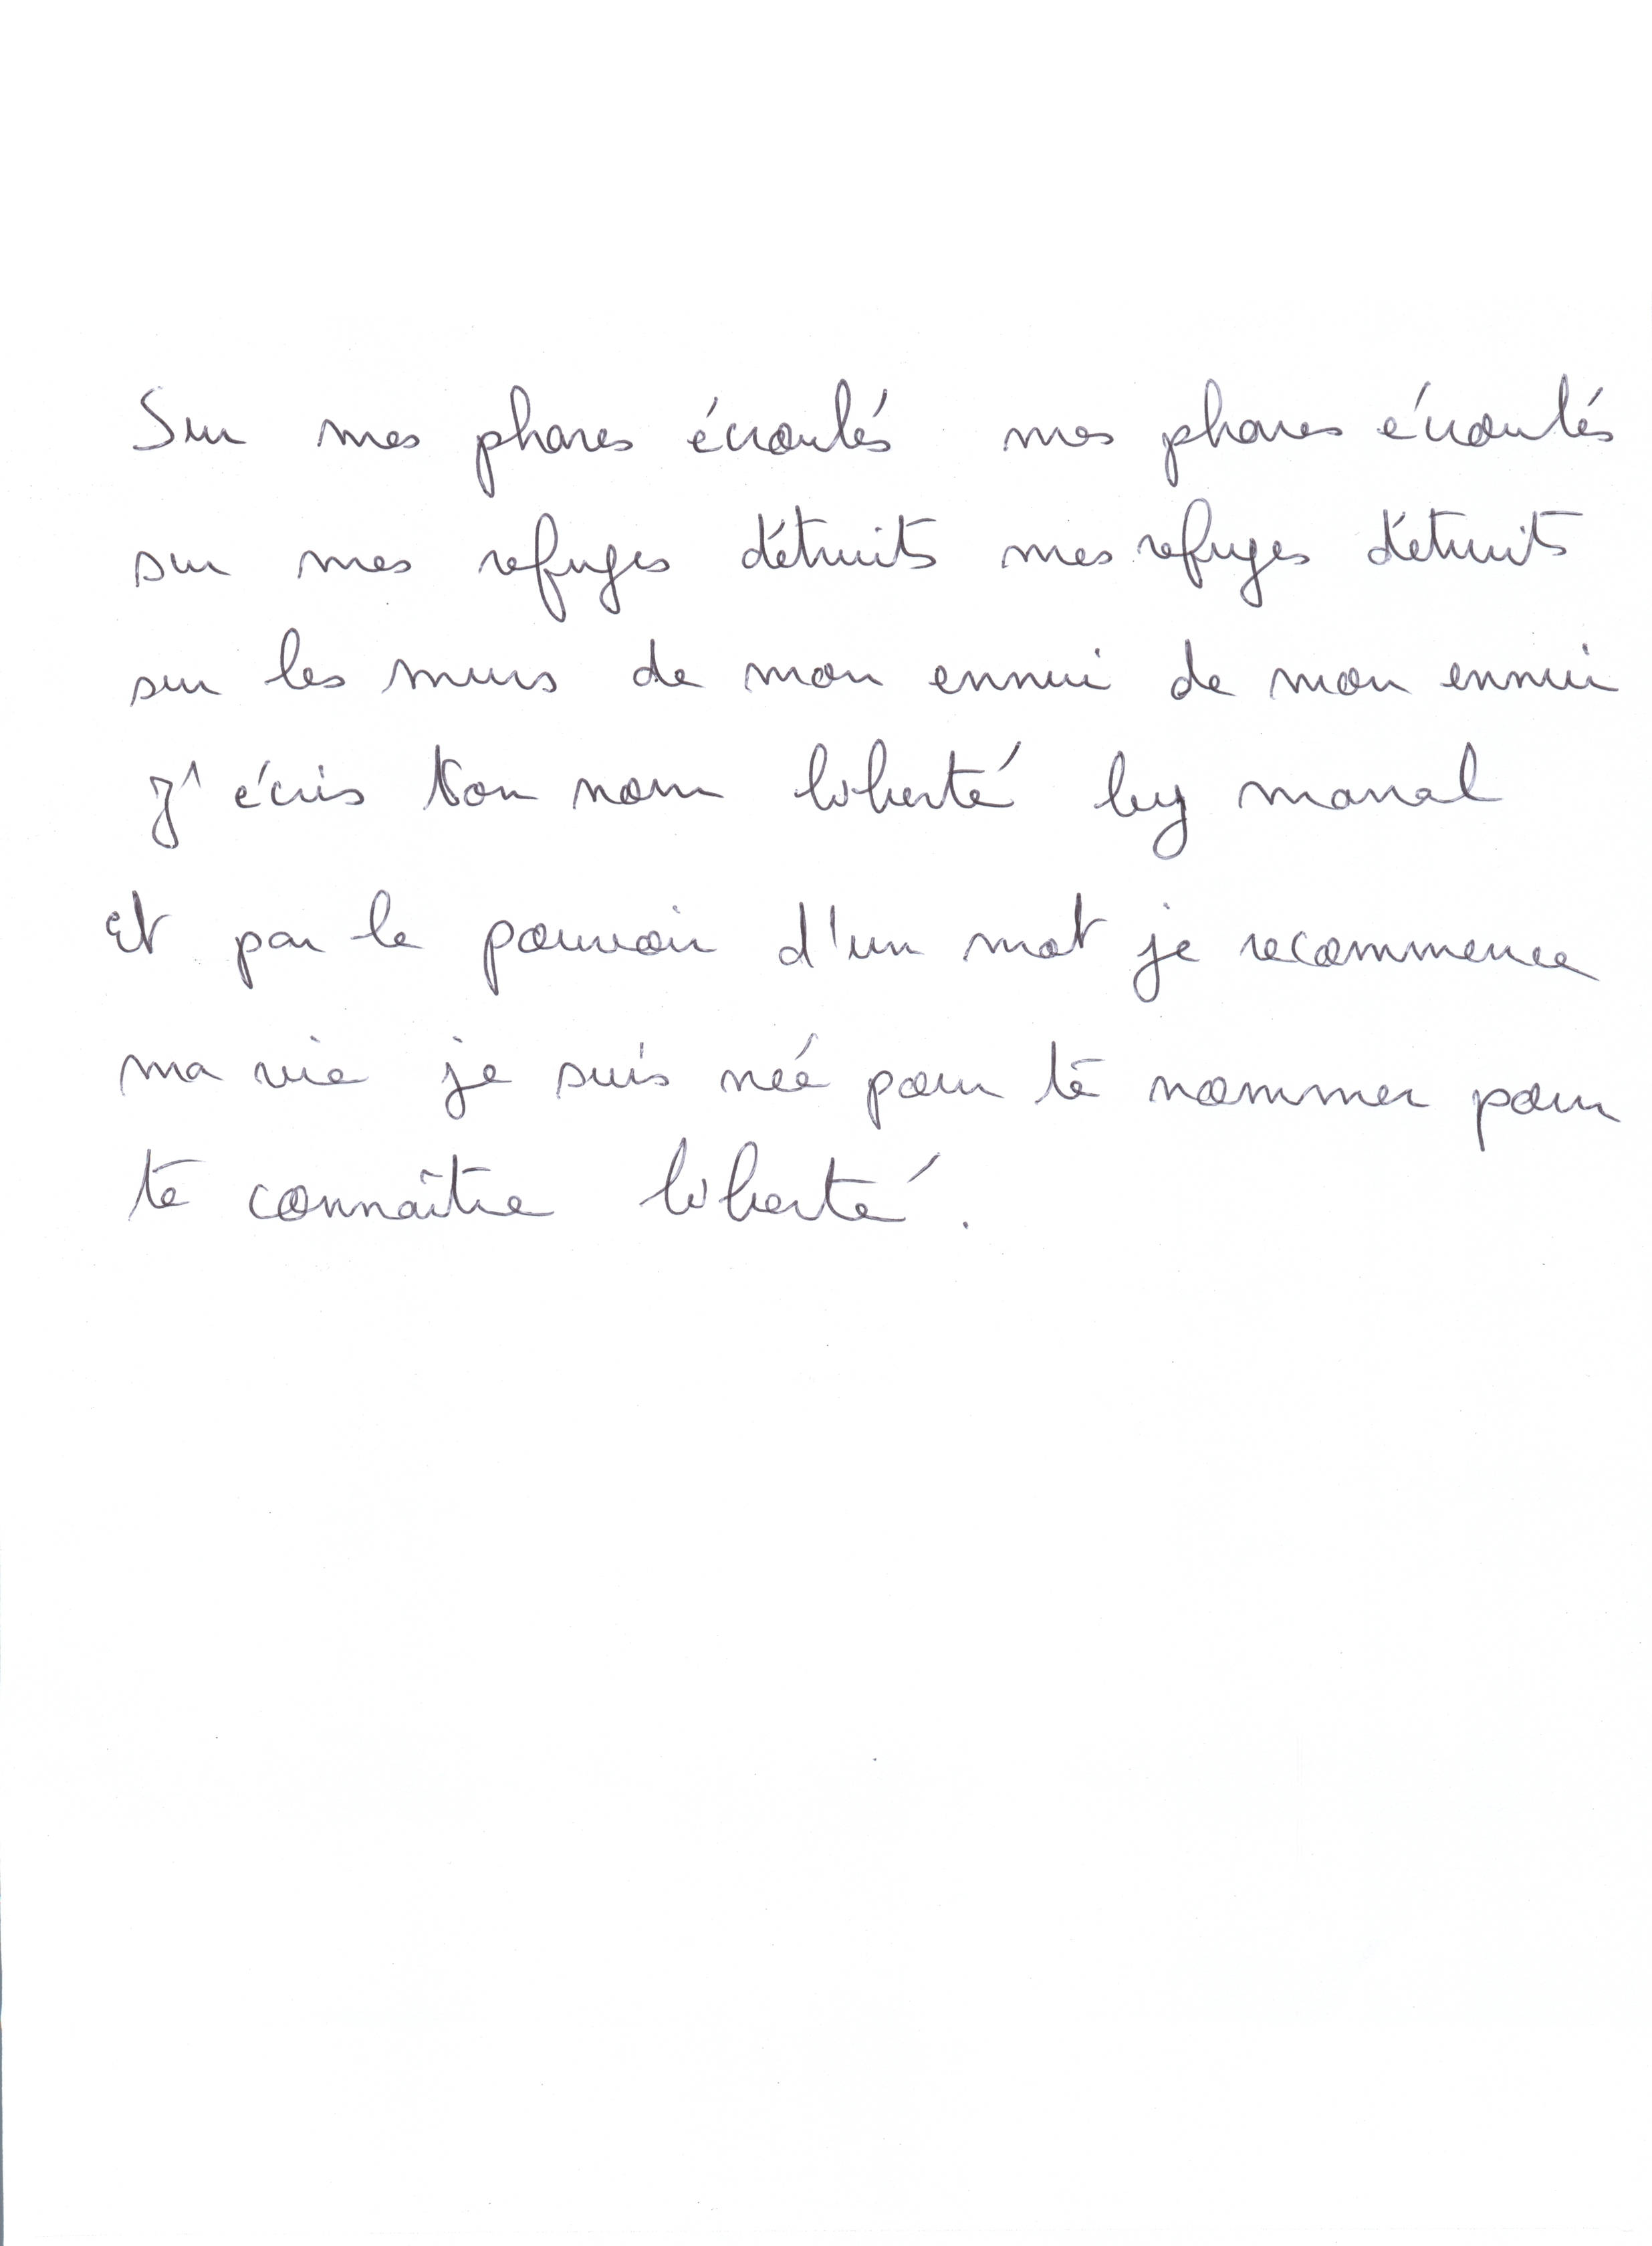 Sur mes phares écroulés mes phares écroulés
sur mes refuges détruits mes refuges détruits
sur les murs de mon ennui de mon ennui
J'écris ton nom liberté by manal
Et par le pouvoir d'un mot je recommence
ma vie je suis née pour te nommer pour
te connaître liberté.